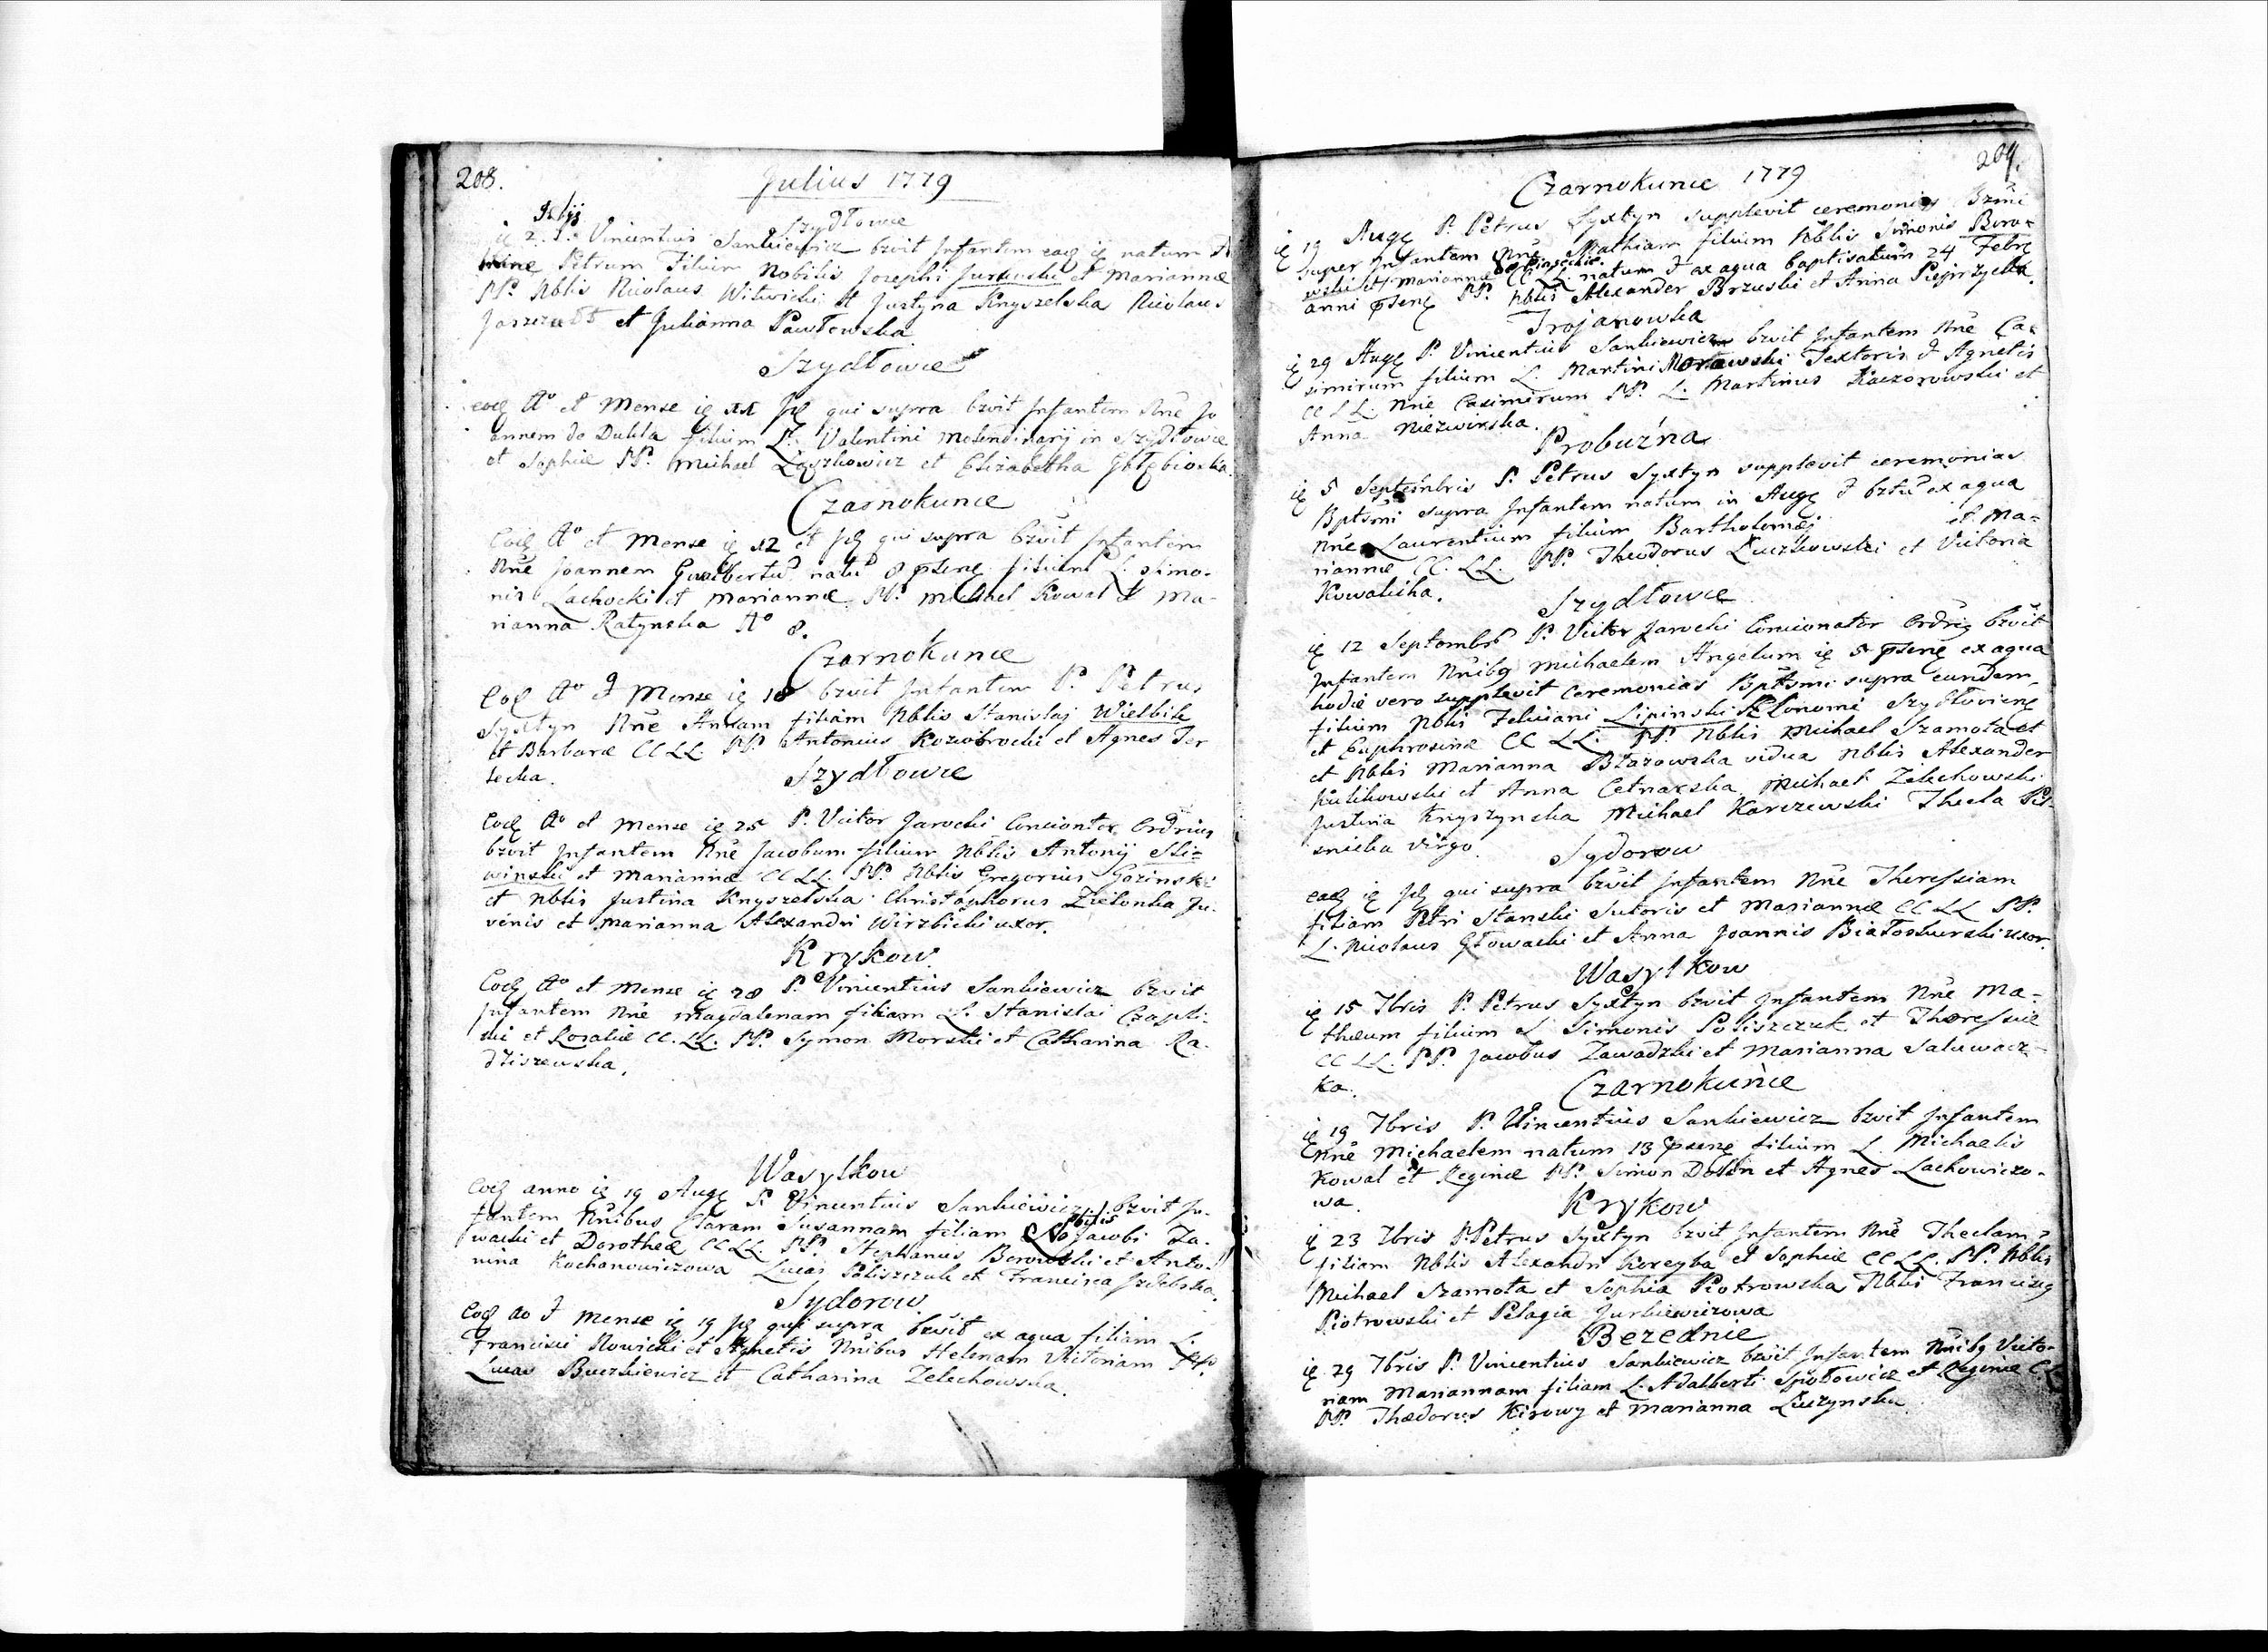 208.
Julius 1779
Julij
Szydłowce
ię 2. P. Vincentius Sankiewicz bzvit Infantem eadę ię natum
Petrum Filium Nobilis Josephi Jurkowski et Mariannæ
PP. Nblis Nicolaus Witwicki et Justyna Knyszelska Nicolaus
et Julianna Pawłowska
Szydłowce
eodę Aº et Mense ię xx Idę qui supra bzvit Infantem Nñe Jo
annem de Dukla filium L. Valentini Molendinarij in Szydłowce
et Sophiæ PP. Michael Laszkowicz et Elizabetha Głębiocka.
Czarnokunce
Eodę Aº et Mense ię 12 et Idę qui supra bzvit Infantem
Nñe Joannem Gwalbertũ natũ 8 pſenę filium L. Simo-
nis Lachocki et Mariannæ. PP. Michael Kowal et Ma-
rianna Ratynska Aº 8.
Czarnokunce
Eodę Aº & Mense ię 18 bzvit Infantem P. Petrus
Syxtyn Nñe Annam filiam Nblis Stanislaj Wielbik
et Barbaræ CCLL. PP. Antonius Kozwobrocki et Agnes Ter
lecka.
Szydłowce
Eodę Aº et Mense ię 25 P. Victor Jarocki Concionator Ordrius
bzvit Infantem Nñe Jacobum filium Nblis Antonij Sli-
winski et Mariannæ CCLL. PP. Nblis Gregorius Gozinski
et Nblis Justina Knyszelska Christophorus Zielonka Ju-
venis et Marianna Alexandri Wirzbicki uxor.
Krykow
Eodę Aº et Mense ię 28 P. Vincentius Sankiewicz bzvit
Infantem Nñe Magdalenam filiam L. Stanislai Czapli-
ski et Rozaliæ CC. LL. PP. Symon Morski et Catharina Ra-
dziszewska.
Wasylkow
Eodę anno ię 19 Augę P. Vincentius Sankiewicz bzvit In-
fantem Nñibus Claram Susannam filiam Nobilis Jacobi Za-
wacki et Dorotheæ CCLL. PP. Stephanus Borowski et Anto-
nina Kochanowiczowa Lucas Poliszczuk et Francisca
Sydorow
Eodę Ao & Mense ię 19 Idę qui supra bzvit ex aqua filiam L.
Francisci Nowicki et Agnetis Nñibus Helenam Victoriam PP.
Lucas Buczkiewicz et Catharina Zelechowska.
209.
Czarnokunce 1779
ię 19 Augę P. Petrus Syxtyn supplevit ceremonias Bzmi
super Infantem Nñe Mathiam filium Nblis Simonis Boro-
wski et Mariannæ de Piaseckie. CC LL natum & ex aqua baptisatum 24 Febrę
anni pſenę PP. Nblis Alexander Brzuski et Anna Pieprzycka.
Trojanowka
ię 29 Augę P. Vincentius Sankiewicz bzvit Infantem Nñe Ca-
simirum filium L. Martini Morawski Textoris & Agnetis
CC LL. Nñe Casimirum PP. L. Martinus Kaczorowski et
Anna Niezwirska.
Probuźna
ię 5 Septembris P. Petrus Syxtyn supplevit ceremonias
Bptsmi supra Infantem natum in Augę & bztũ ex aqua
Nñe Laurentium filium Bartholomęj et Ma-
riannæ CC. LL. PP. Theodorus Łuczkowski et Victoria
Kowalicha.
Szydłowce
ię 12 Septembr P. Victor Jarocki Concionator Ordrię bzvit
Infantem Nñibę Michaelem Angelum ię 5 pſenę ex aqua
hodie vero supplevit Ceremonias Bptsmi supra eundem,
filium Nblis Feliciani Lipinski Œkonomi Szydłoviens
et Euphrosinæ CC LL. PP. Nblis Michael Szamota et
et Nblis Marianna Błazowska vidua Nblis Alexander
Kulikowski et Anna Cetnarska Michael Zelechowski
Justina Knyszynska Michael Karczewski Thecla
virgo.
Sydorow
eadę ię Idę qui supra bzvit Infantem Nñe Theresiam
filiam Petri Stanski Sutoris et Mariannæ CC LL PP.
L. Nicolaus Głowacki et Anna Joannis Białoskurski uxor.
Wasylkow
ię 15 7bris P. Petrus Syxtyn bzvit Infantem Nñe Ma-
thæum filium L Simonis Poliszczuk et Theresiæ
CC LL. PP. Jacobus Zawadzki et Marianna Saluwacz-
ka.
Czarnokuńce
ię 19 7bris P. Vincentius Sankiewicz bzvit Infantem
Nñe Michaelem natum 13 pſenę filium L. Michaelis
Kowal et Reginæ PP. Simon Dolin et Agnes Lachowiczo-
wa
Krykow
ię 23 7bris P. Petrus Syxtyn bzvit Infantem Nñe Theclam
filiam Nblis Alexandri Koreyba et Sophiæ CC LL. PP. Nblis
Michael Szamota et Sophia Piotrowska Nblis Franciscę
Piotrowski et Pelagia Jurkiewiczowa
Bezednie
ię 29 7bris P. Vincentius Sankiewicz bzvit Infantem Nñibę Victo-
riam Mariannam filiam L. Adalberti Społowicz et Reginæ CC
PP. Thædorus Kirowy et Marianna Łuszynska